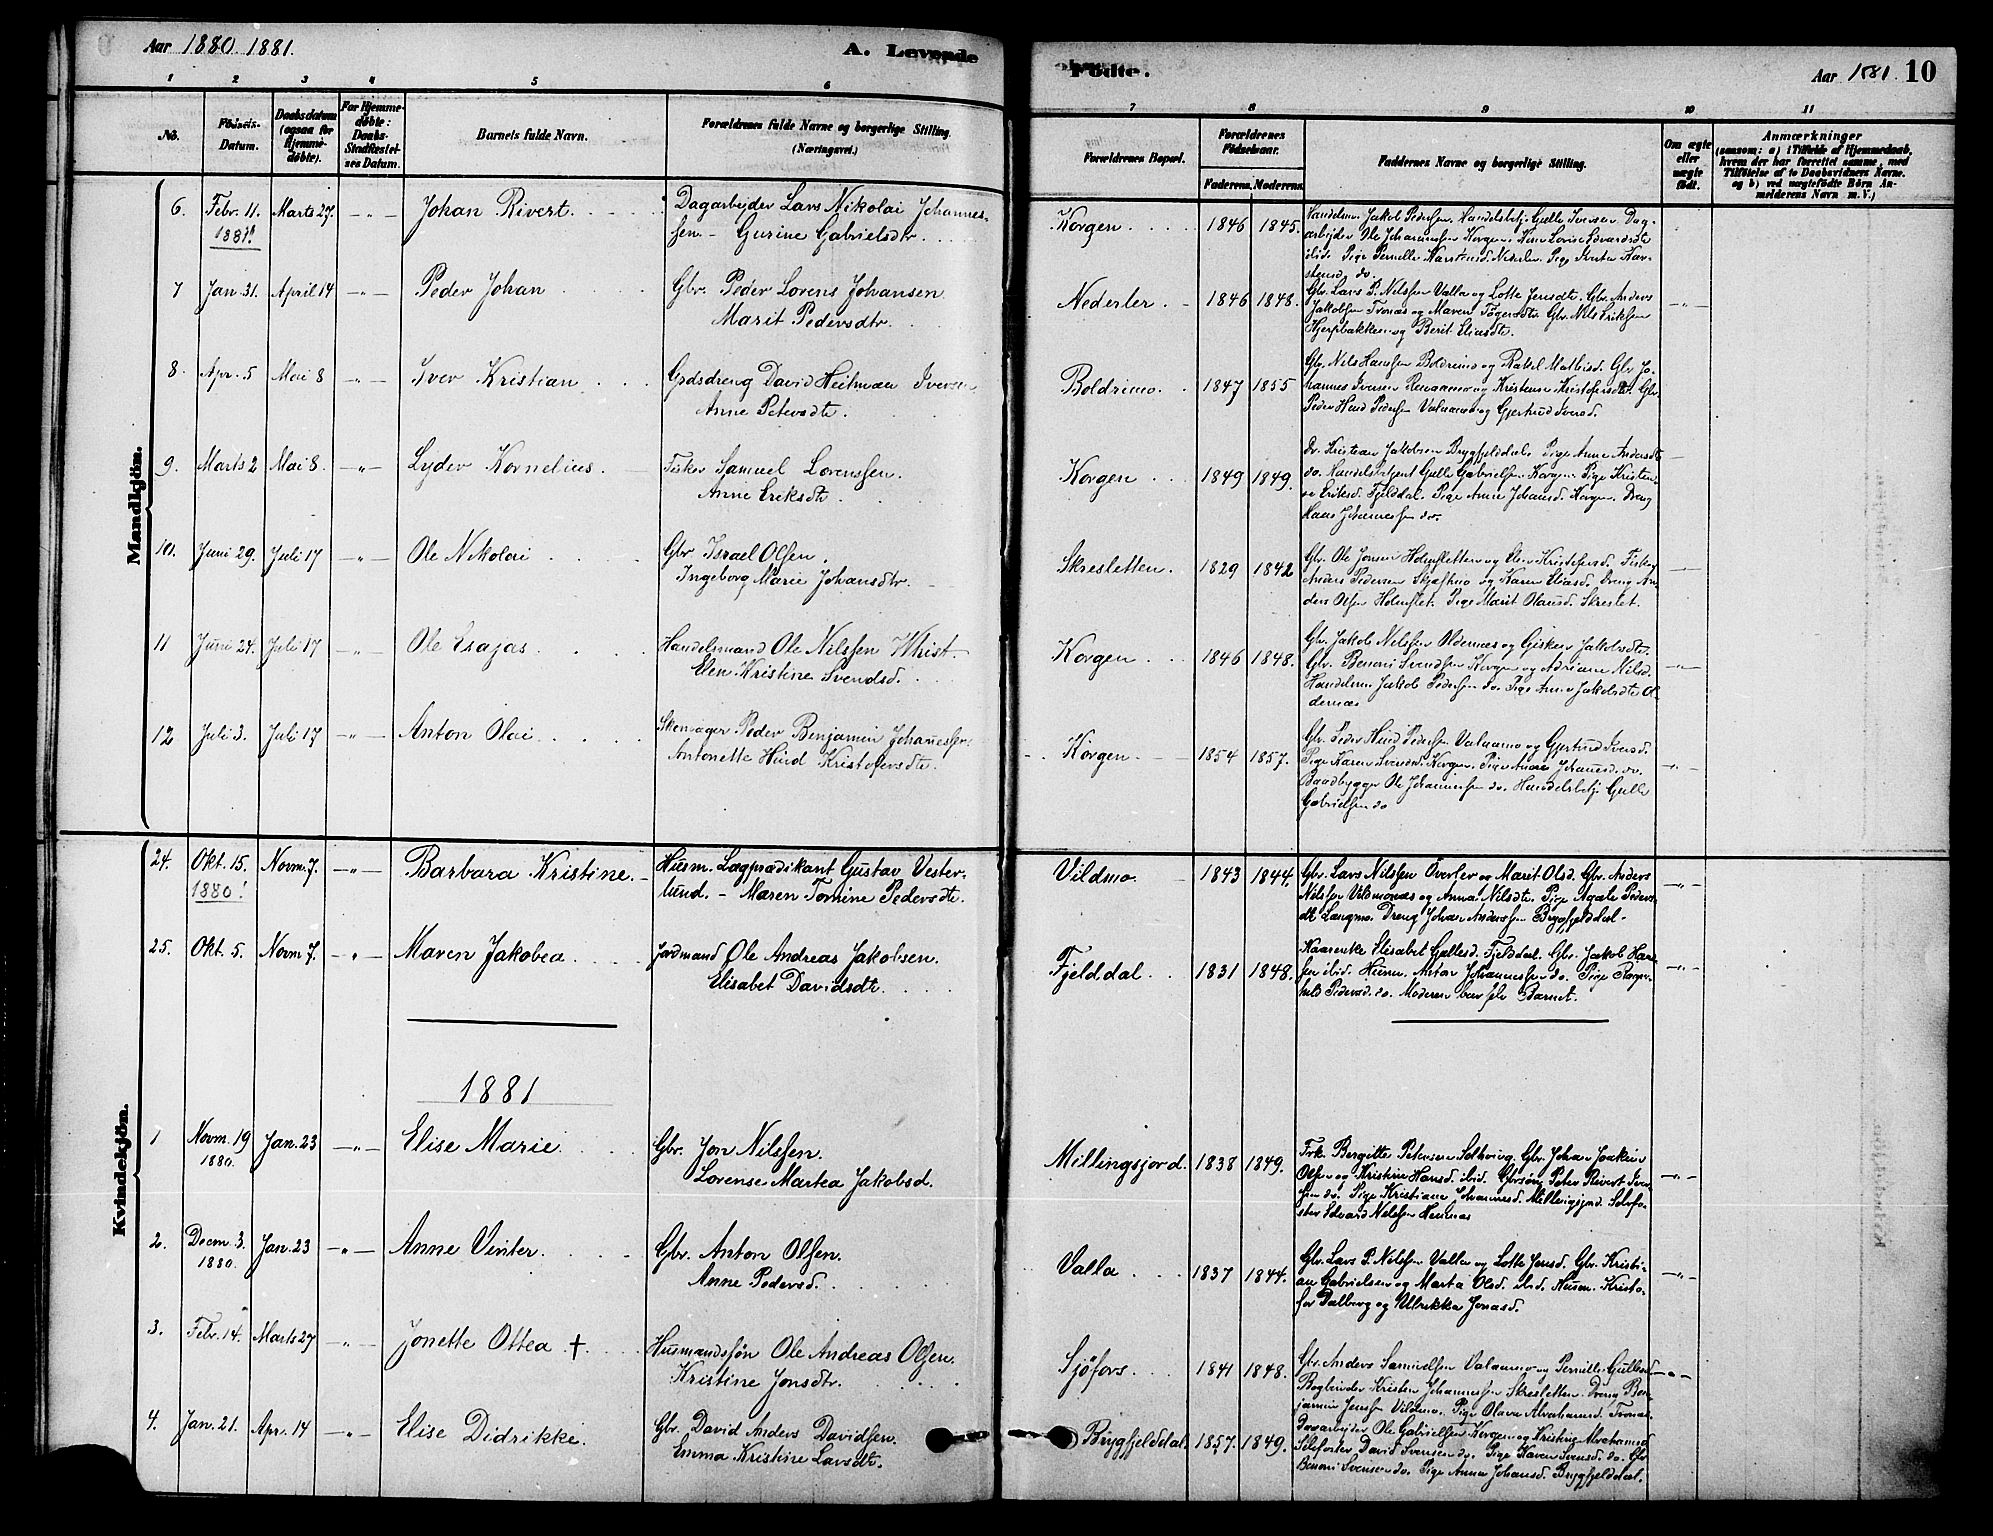 Aar 1880. 1881.
A. Levende
Fødte.
Aar 1881. 10
1 2 3 4 5 6 7 8 9 10 11
No.
Fødsels-Datum.
Daabsdatum (ogsaa for Hjemmedøbte).
For Hjemmedøbte: Daabs-Stadfæstelses Datum.
Barnets fulde Navn.
Forældrenes fulde Navne og borgerlige Stilling. (Næringsvei.)
Forældrenes Bopæl.
Forældrenes Fødselsaar.
Faderens. Moderens.
Faddernes Navne og borgerlige Stilling.
Om ægte eller uægte født.
Anmærkninger
(saasom: a) i Tilfælde af Hjemmedaab,
hvem der har forrettet samme, med
Tilføielse af to Daabsvidners Navne.
og b) ved uægtefødte Børn An-
melderens Navn m. V.)
Mandkjøn.
6. Febr. 11. 1881. Marts 27. Johan Rivert
Dagarbeider Lars Nikolai Johannes-
sen - Gurine Gabrielsdtr.
Korgen 1846 1845.
Handelsm. Jakob Pedersen. Handelsbetj. Gulle Iversen. Dag-
arbeider Ole Johannessen Korgen.
ibid. Pige Pernille Karstensd. Nederler. Pige
stensd. do.
7 Jan. 31. April 14 Peder Johan
Gbr. Peder Lorens Johansen
Marit Pedersdtr.
Nederler 1846 1848.
Gbr. Lars P. Nilssen Valla og Lotte Jensdtr. Gbr. Anders
Jakobsen Trones og Maren Gbr. Nils Eriksen
og Berit Eliasdtr.
8. Apr. 5 Mai 8 Iver Kristian
Gdsdreng David Heitman Iversen
Anne Petersdtr.
Boldrimo 1847 1855
Gbr. Nils Hanssen Boldrimo og Rakel Gbr. Jo-
hannes Iversen og Gbr.
Peder Hind Pedersen Valaamo og Gjertrud Iversd.
9. Marts 2 Mai 8. Lyder Kornelius
Fisker Samuel Lorenssen.
Anne Eriksdtr.
Korgen 1849 1849.
Kristian Jakobsen Brygfjelddal. Pige Anne Andersdtr
do. Handelsbetjent Gulle Gabrielsen Korgen. Pige Kristen-
se Eriksd. Fjelddal. Pige Anne Johansd. Korgen. Dreng
Hans Johannessen do.
10. Juni 29. Juli 17 Ole Nikolai
Gbr. Israel Olsen.
Ingeborg Marie Johansdtr.
Skresletten. 1829 1842
Gbr. Ole Jonsen Holmsletten og Elen Kristofersd. Fisker
Anders Pedersen og Karen Eliasd. Dreng An-
ders Olsen Holmslet. Pige Marit Olausd. Skreslet.
11 Juni 24. Juli 17 Ole Esajas
Handelsmand Ole Nilssen Whist
Elen Kristine Svendsd.
Korgen 1846 1848.
Gbr. Jakob Nilssen Oldernæs og Gisken Jakobsdtr.
Gbr. Benoni Svendsen Korgen og Adriane Nilsd.
Handelsm. Jakob Pedersen do. Pige Anne Jakobsdtr Ol-
dernæs
12 Juli 3. Juli 17 Anton Olai
Peder Benjamin Johannessen
Antonette Hind Kristofersdtr.
Korgen 1854 1857.
Gbr. Peder Hind Pedersen Valaamo og Gjertrud Iversd.
Pige Karen Svendsd. Korgen. Pige Anne Johansd. do.
Baadbygger Ole Johannessen do. Handelsbetj. Gulle
Gabrielsen do
Kvindekjøn.
24. Okt. 15. 1880! Novm. 7. Barbara Kristine
Husm. Lægprædikant Gustav Vester-
lund. - Maren Tomine Pedersdtr.
Vildmo 1843 1844.
Gbr. Lars Nilssen Överler og Marit Olsd. Gbr. Anders
Nilssen Vildmonæs og Anna Nilsdtr. Pige Agate Peders-
dtr Langmo. Dreng Johan Anderssen Brygfjelddal.
25. Okt. 5. Novm 7. Maren Jakobea
Jordmand Ole Andreas Jakobsen.
Elisabet Davidsdtr.
Fjelddal 1831 1848.
Elisabet Gullesd. Fjelddal. Gbr. Jakob Han-
sen ibid. Husm. Anton Johannessen do. Pige Ragn-
hild Pedersd. do. Moderen bar selv Barnet.
1881
1 Novm. 19 1880. Jan. 23 Elise Marie
Gbr. Jon Nilssen.
Lorense Martea Jakobsd.
Millingsjord. 1838 1849.
Bergitte Petersen Solhving. Gbr. Johan Joakim
Olsen og Kristine Hansd. ibid. Gbrsøn Peter Rivert Iver-
sen do. Pige Kristiane Johannesd. Millingsjord.
Edvard Nilssen Hemnæs
2. Decm. 3. 1880. Jan. 23 Anne Vinter
Gbr. Anton Olsen.
Anne Pedersd.
Valla 1837 1844.
Gbr. Lars P. Nilssen Valla og Lotte Jensd. Gbr. Kristi-
an Gabrielsen og Marta Olsd. ibid. Husm. Kristo-
fer Dalberg og Ulrikka Jonasd.
3. Febr. 14. Marts 27 Jonette Ottea †
Husmandssøn Ole Andreas Olsen.
Kristine Jonsdtr.
Sjöfors 1841 1848.
Gbr. Anders Samuelsen Valaamo og Pernille Gullesd.
Bogbinder Kristen Johannessen Skresletten. Dreng Ben-
jamin Jenssen Vildmo. Pige Olava Abrahamsd. Trones.
4. Jan. 21. Apr. 14 Elise Didrikke
Gbr. David Anders Davidsen.
Emma Kristine Larsdtr.
Brygfjelddal. 1857. 1849.
Dagarbeider Ole Gabrielsen Korgen og Kristine Abrahamsd.
David Svensen do. Pige Karen Svensd. do. Gbr.
Benoni Svensen do. Pige Anna Johansd. Brygfjelddal.